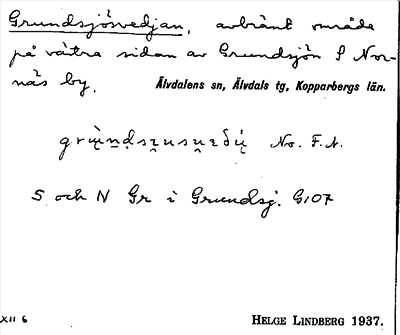 Grundsjösvedjan, avbränt område
på västra sidan av Grundsjön S Nor-
näs by. Älvdalens sn, Älvdals tg, Kopparbergs län.
No. F.A.
S och N Gr i Grundsj. G107
XII 6 HELGE LINDBERG 1937.